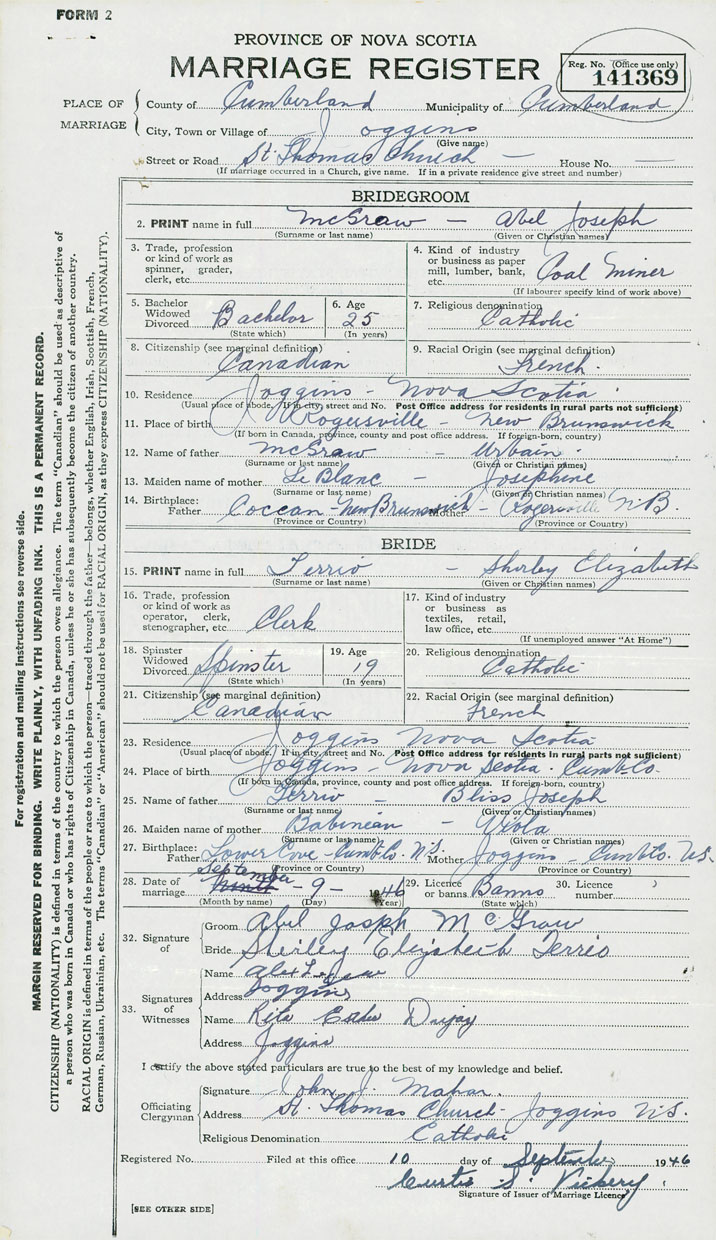 FORM 2
PROVINCE OF NOVA SCOTIA
MARRIAGE REGISTER
Reg. No. (Office use only)
141369
PLACE OF MARRIAGE
County of Cumberland Municipality of Cumberland
City, Town or Village of Joggins
(Give name)
Street or Road St. Thomas Church — House No. —
(If marriage occurred in a Church, give name. If in a private residence give street and number)
BRIDEGROOM
2. PRINT name in full McGraw — Abel Joseph
(Surname or last name) (Given or Christian names)
3. Trade, profession or kind of work as spinner, grader, clerk, etc.
4. Kind of industry or business as paper mill, lumber, bank, etc. Coal Miner
(If labourer specify kind of work above)
5. Bachelor Widowed Divorced Bachelor
(State which)
6. Age 25
(In years)
7. Religious denomination
Catholic
8. Citizenship (see marginal definition)
Canadian
9. Racial Origin (see marginal definition)
French
10. Residence Joggins - Nova Scotia
(Usual place of abode. If in city, street and No. Post Office address for residents in rural parts not sufficient)
11. Place of birth Rogersville - New Brunswick
(If born in Canada, province, county and post office address. If foreign-born, country)
12. Name of father McGraw - Urbain
(Surname or last name) (Given or Christian names)
13. Maiden name of mother Le Blanc - Josephine
(Surname or last name) (Given or Christian names)
14. Birthplace:
Father Coccan - New Brunswick Mother - Rogersville N.B.
(Province or Country) (Province or Country)
BRIDE
15. PRINT name in full Terrio - Shirley Elizabeth
(Surname or last name) (Given or Christian names)
16. Trade, profession or kind of work as operator, clerk, stenographer, etc Clerk
17. Kind of industry or business as textiles, retail, law office, etc.
(If unemployed answer "At Home")
18. Spinster Widowed Divorced Spinster
(State which)
19. Age 19
(In years)
20. Religious denomination
Catholic
21. Citizenship (see marginal definition)
Canadian
22. Racial Origin (see marginal definition)
French
23. Residence Joggins Nova Scotia
(Usual place of abode. If in city, street and No. Post Office address for residents in rural parts not sufficient)
24. Place of birth Joggins Nova Scotia. Cumb. Co.
(If born in Canada, province, county and post office address. If foreign-born, country)
25. Name of father Terrio - Bliss Joseph
(Surname or last name) (Given or Christian names)
26. Maiden name of mother Babinean - Viola
(Surname or last name) (Given or Christian names)
27. Birthplace:
Father Lower Cove - Cumb Co. N.S. Mother Joggins - Cumb Co. N.S.
(Province or Country) (Province or Country)
28. Date of marriage September - 9 - 1946
(Month by name) (Day) (Year)
29. Licence or banns Banns
(State which)
30. Licence number
32. Signature of
Groom Abel Joseph McGraw
Bride Shirley Elizabeth Terrio
33. Signatures of Witnesses
Name Alex
Address Joggins
Name Rita
Address Joggins
I certify the above stated particulars are true to the best of my knowledge and belief.
Officiating Clergyman
Signature John J. Mahar.
Address St. Thomas Church - Joggins N.S.
Religious Denomination Catholic
Registered No. Filed at this office 10 day of September 1946
Curtis S. Vickery
Signature of Issuer of Marriage Licence
[SEE OTHER SIDE]
For registration and mailing instructions see reverse side.
MARGIN RESERVED FOR BINDING. WRITE PLAINLY, WITH UNFADING INK. THIS IS A PERMANENT RECORD.
CITIZENSHIP (NATIONALITY) is defined in terms of the country to which the person owes allegiance. The term "Canadian" should be used as descriptive of
a person who was born in Canada or who has rights of Citizenship in Canada, unless he or she has subsequently become the citizen of another country.
RACIAL ORIGIN is defined in terms of the people or race to which the person—traced through the father—belongs, whether English, Irish, Scottish, French,
German, Russian, Ukrainian, etc. The terms "Canadian" or "American" should not be used for RACIAL ORIGIN, as they express CITIZENSHIP (NATIONALITY).